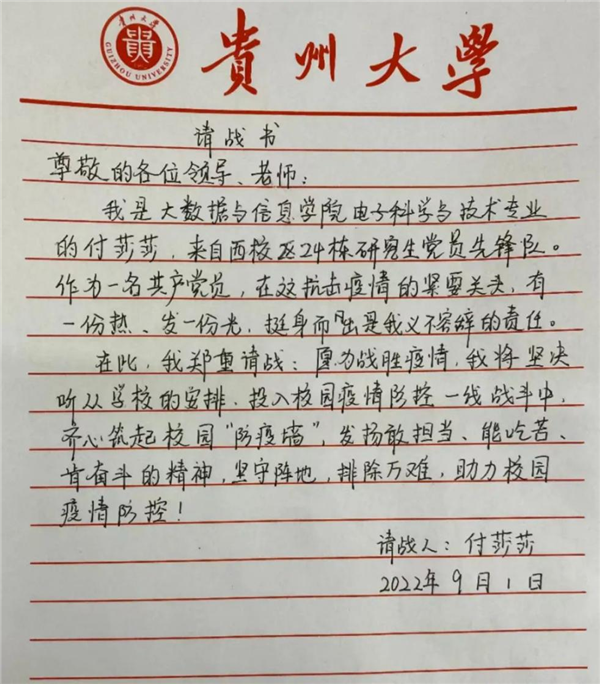 贵州大学
GUIZHOU UNIVERSITY
貴州大學
请战书
尊敬的各位领导、老师：
我是大数据与信息学院电子科学与技术专业
的付莎莎，来自西校区24栋研究生党员先锋队。
作为一名共产党员，在这抗击疫情的紧要关头，有
一份热、发一份光，挺身而出是我义不容辞的责任。
在此，我郑重请战：愿为战胜疫情，我将坚决
听从学校的安排，投入校园疫情防控一线战斗中，
齐心筑起校园“防疫墙”，发扬敢担当、能吃苦、
肯奋斗的精神，坚守阵地，排除万难，助力校园
疫情防控！
请战人：付莎莎
2022年9月1日